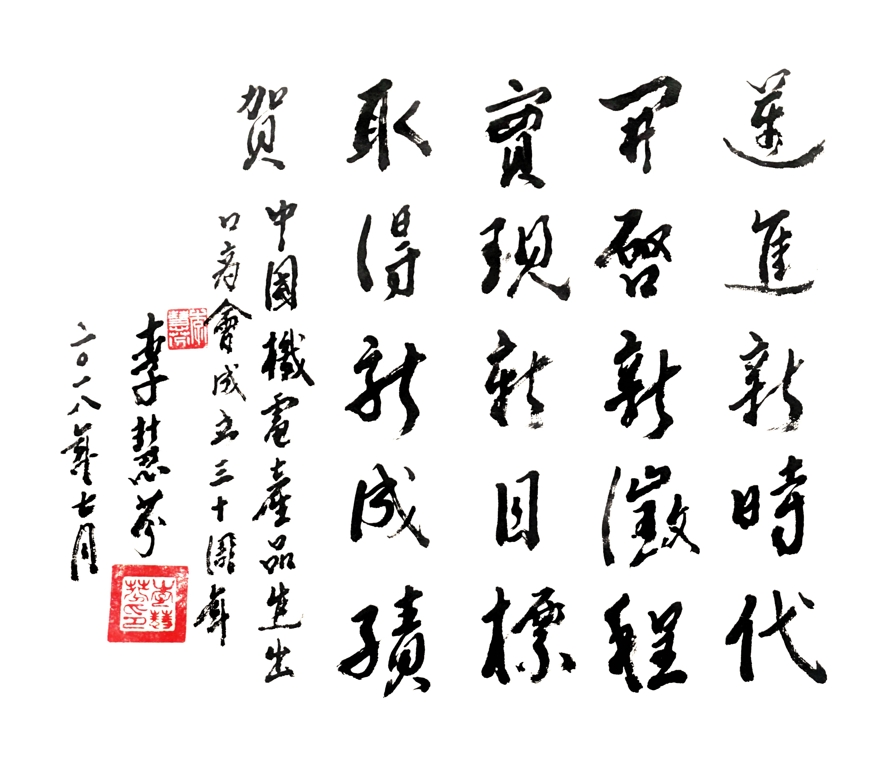 邁進新時代
開啓新徵程
實現新目標
取得新成績
賀
中國機電產品進出
口商會成立三十周年
李慧芬
二〇一八年七月
李慧芬印